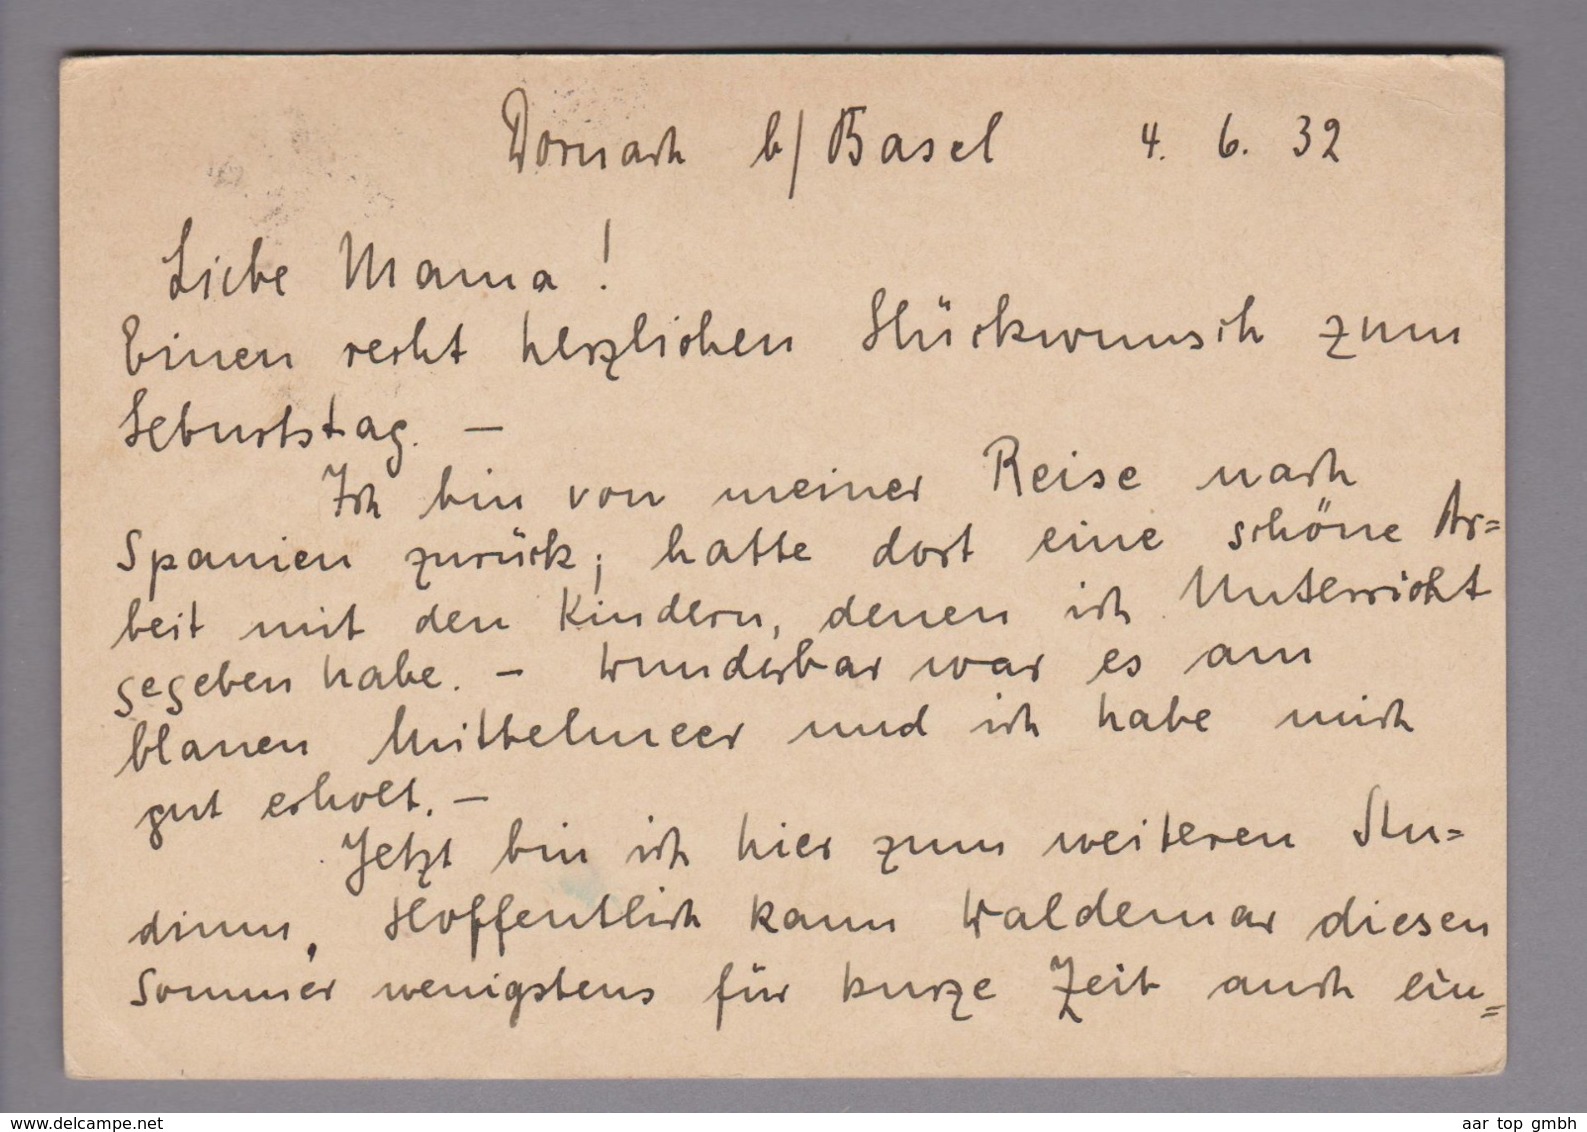 Dornach b/Basel 4. 6. 32
Liebe Mama!
Einen recht herzlichen Glückwunsch zum
Geburtstag. —
Ich bin von meiner Reise nach
Spanien zurück; hatte dort eine schöne Ar=
beit mit den Kindern, denen ich Unterricht
gegeben habe. — Wunderbar war es am
blauen Mittelmeer und ich habe mich
gut erholt. —
Jetzt bin ich hier zum weiteren Stu=
dium. Hoffentlich kann Waldemar diesen
Sommer wenigstens für kurze Zeit auch ein=
www.delcampe.net
aar top gmbh